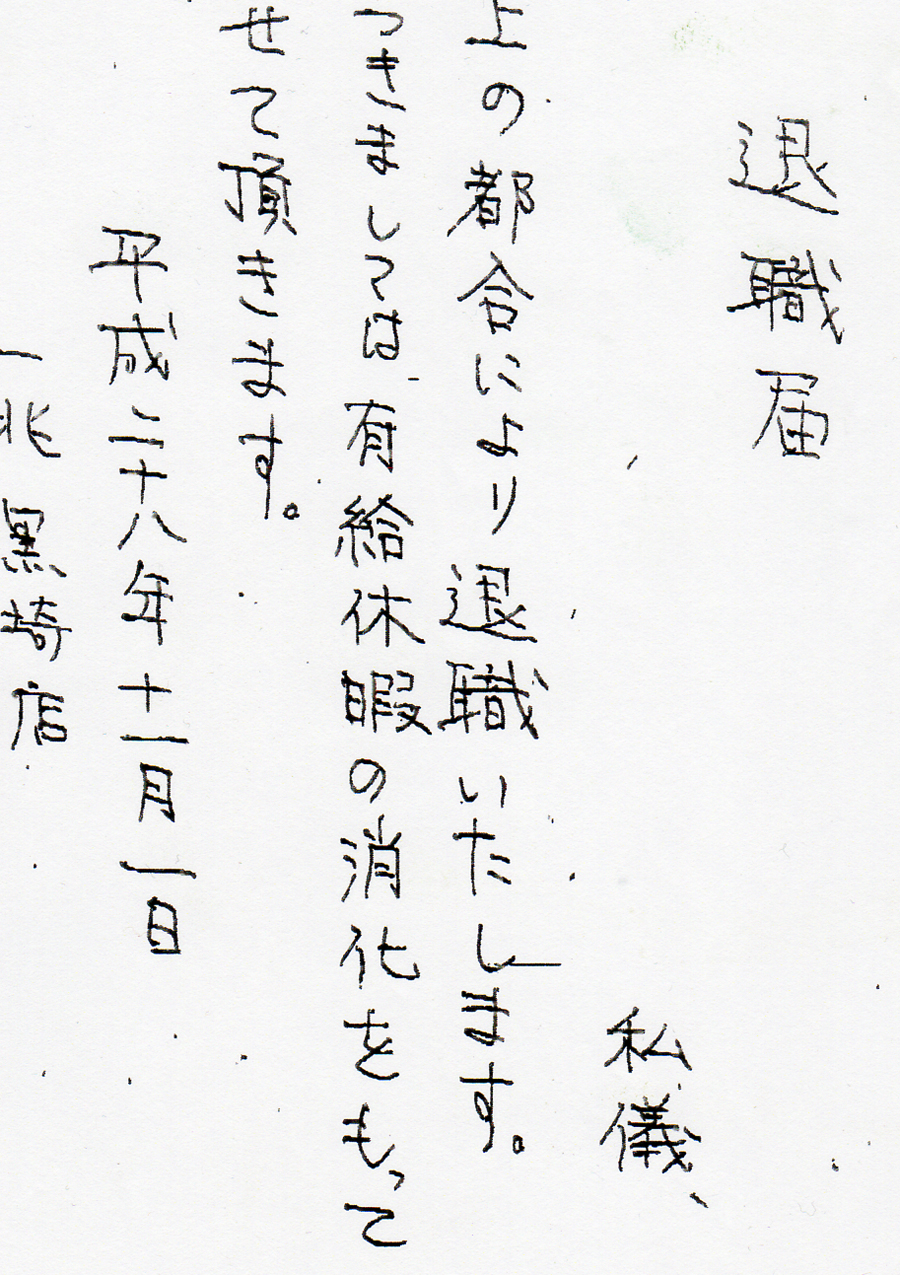 退職届
私儀、
上の都合により退職いたします。
つきましては有給休暇の消化をもって
せて頂きます。
平成二十八年十一月一日
一兆 黒崎店